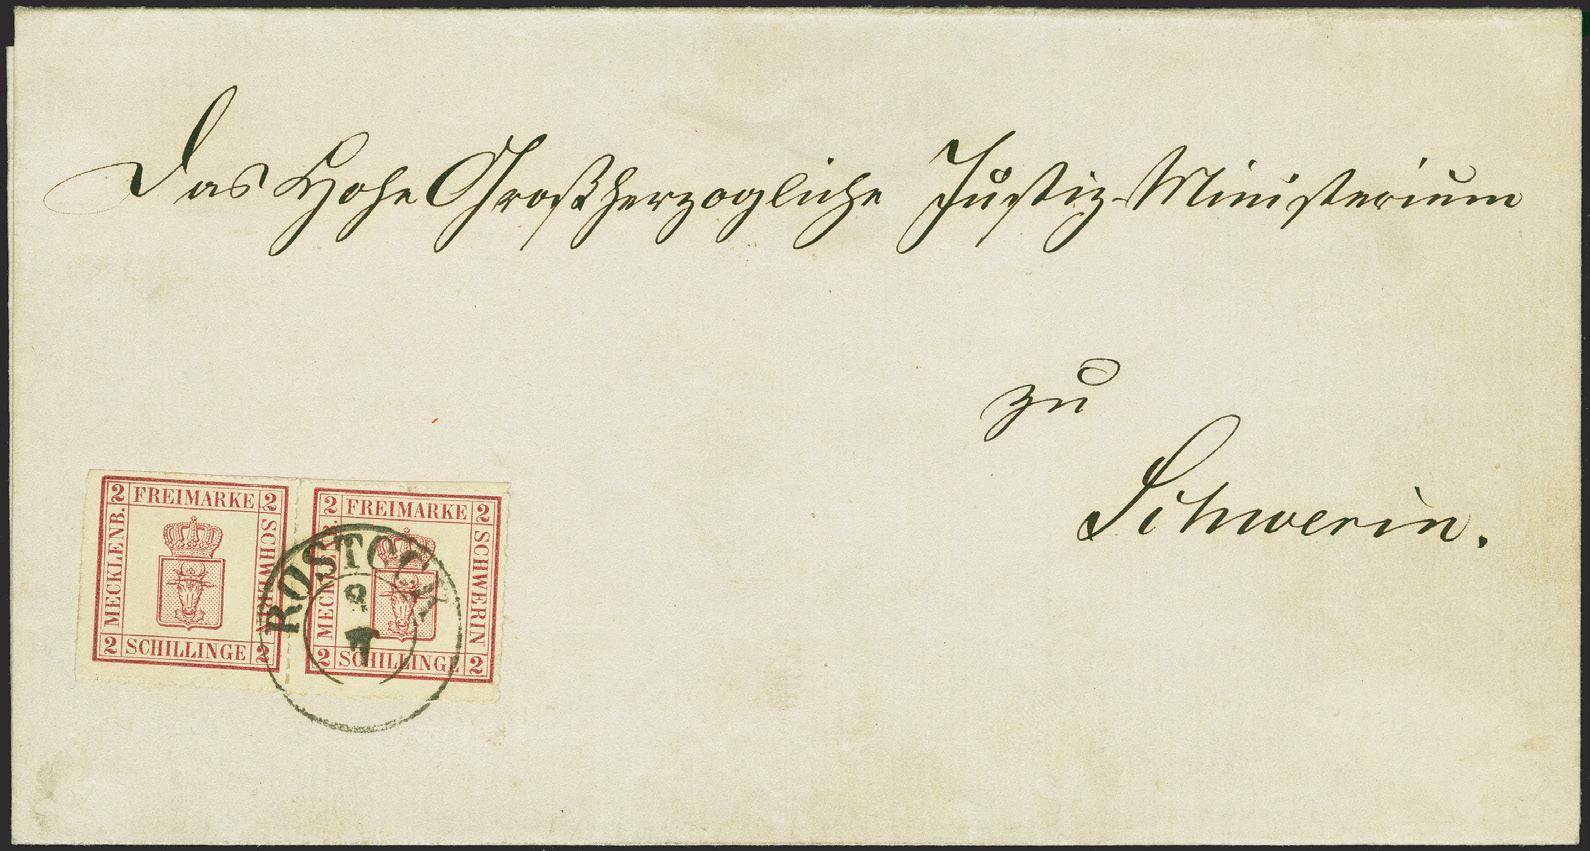 Das Hohe Großherzogliche Justiz-Ministerium
zu
Schwerin.
2 FREIMARKE 2
MECKLENB.
SCHWERIN
2 SCHILLINGE 2
2 FREIMARKE 2
MECKLENB.
SCHWERIN
2 SCHILLINGE 2
ROSTOCK